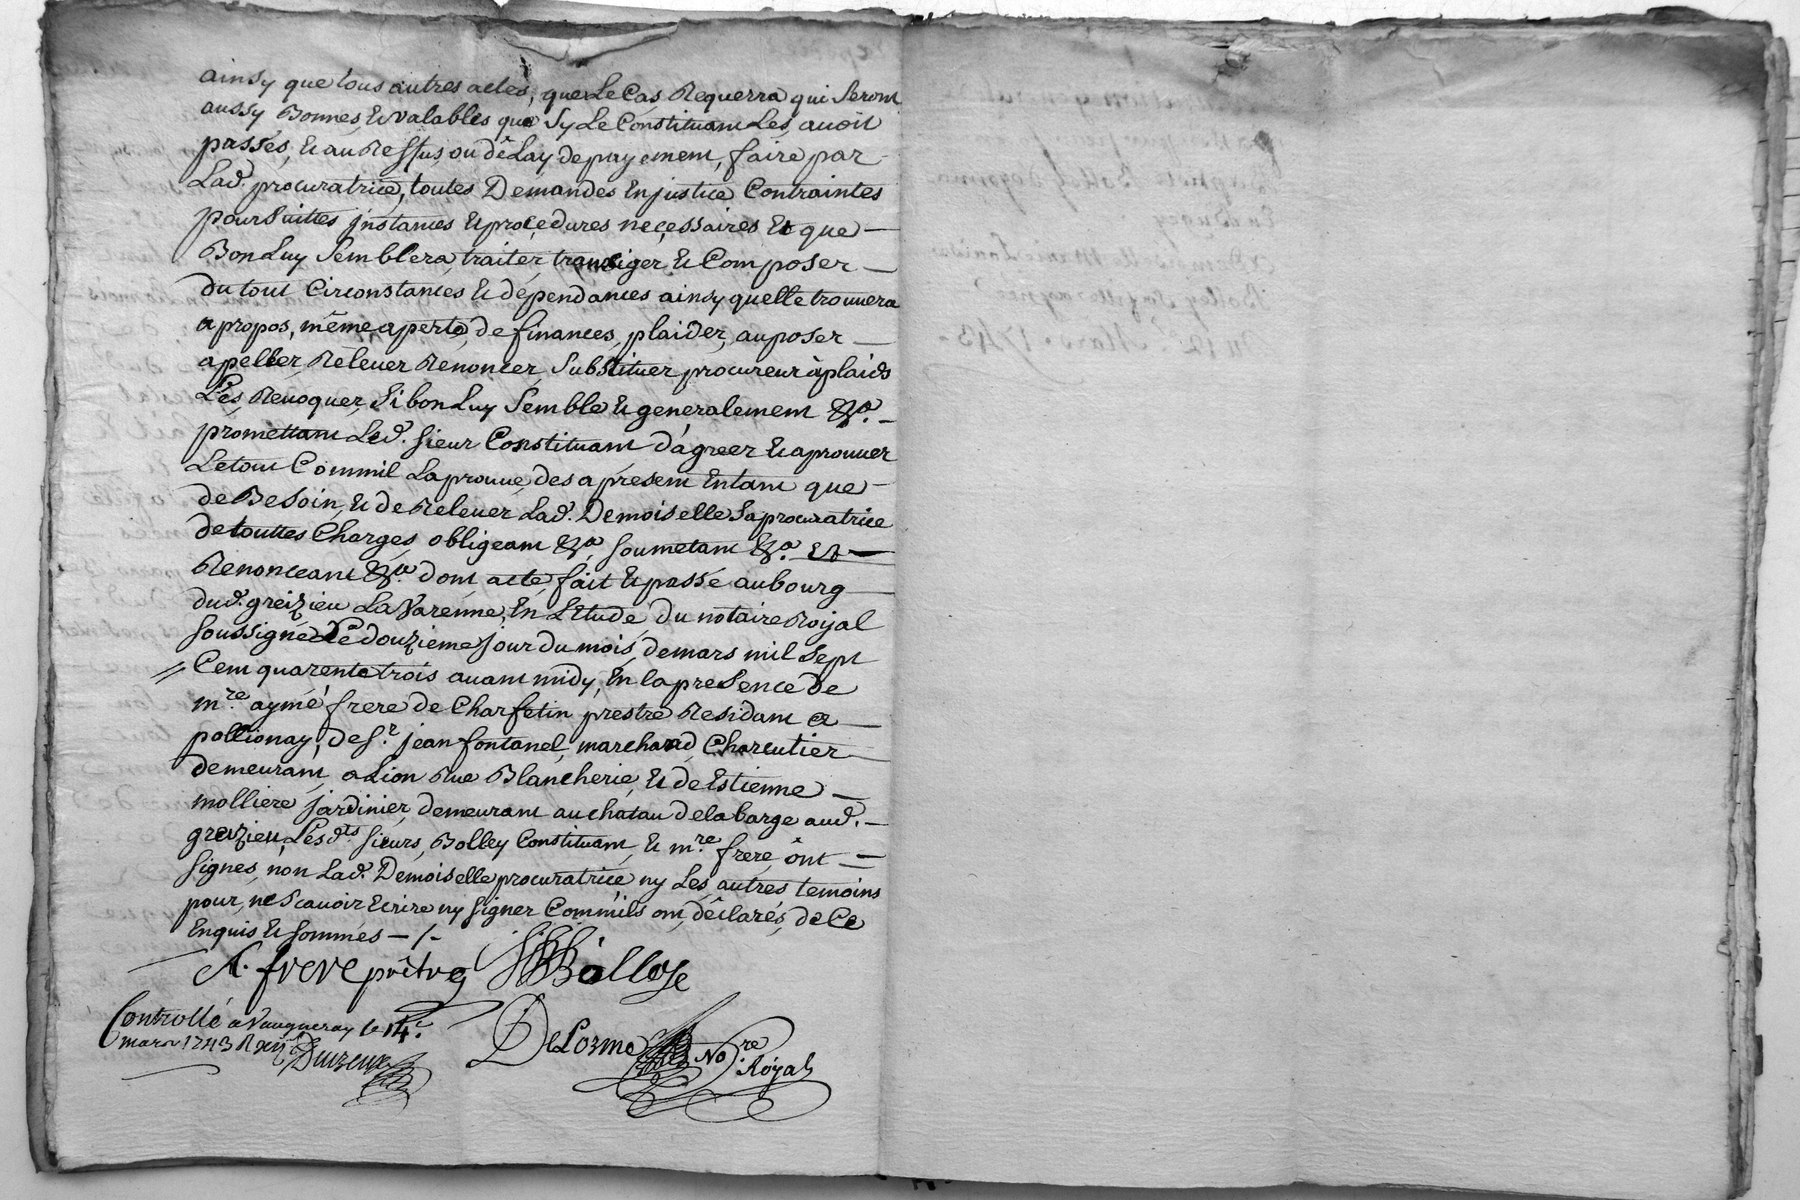 ainsy que tous autres actes, que Le Cas Requerra qui Seront
aussy Bonnes, & valables que Sy Le Constituant Les, auoit
passés, & au Reffus, ou délay de payement, faire par
Lad. procuratrice, toutes Demandes En justice Contraintes
poursuittes jnstances & procedures neçessaires & que
Bon Luy Semblera, traiter, transiger & Composer
du tout Circonstances & dépendances ainsy quelle trouuera
a propos, même a perte, de finances, plaider, auposer
apeller, Releuer Renoncer, Substituer procureur à plaids
Les, Reuoquer, Si bon Luy Semble & generalement &a.
promettant Led. Sieur Constituant d'agreer & aprouuer
Le tout Comm'il Laprouue, des apresent Entant que
de Besoin, & de Releuer Lad. Demoiselle Sa procuratrice
de touttes Charges, obligeant &a. soumetant &a. Et
Renonceant &a. dont acte, fait & passé au bourg
dud. greizieu La Varenne, En L'Etude du notaire Royal
soussigné Le douzieme jour du mois, de mars mil Sept
Cent quarente trois auant midy, En la presence de
m.re aymé frere de Charfetin prestre Residant a
pollionay, de S.r jean fontanel, marchand, Charcutier
demeurant, a Lion Rue Blancherie, & de Estienne
molliere, jardinier, demeurant au chatau de la barge aud.
greizieu, Lesd.ts Sieurs, Bolley Constituant, & m.re frere, ônt
signes, non Lad. Demoiselle procuratrice ny Les, autres temoins
pour, ne Scauoir Ecrire ny signer Comm'ils ont, déclarés, de Ce
Enquis & sommés - / -
A. frere prêtre Bollose
Controllé a Vaugneray le 14.e
mars 1743 R xij s
DeLorme No.re
Royal